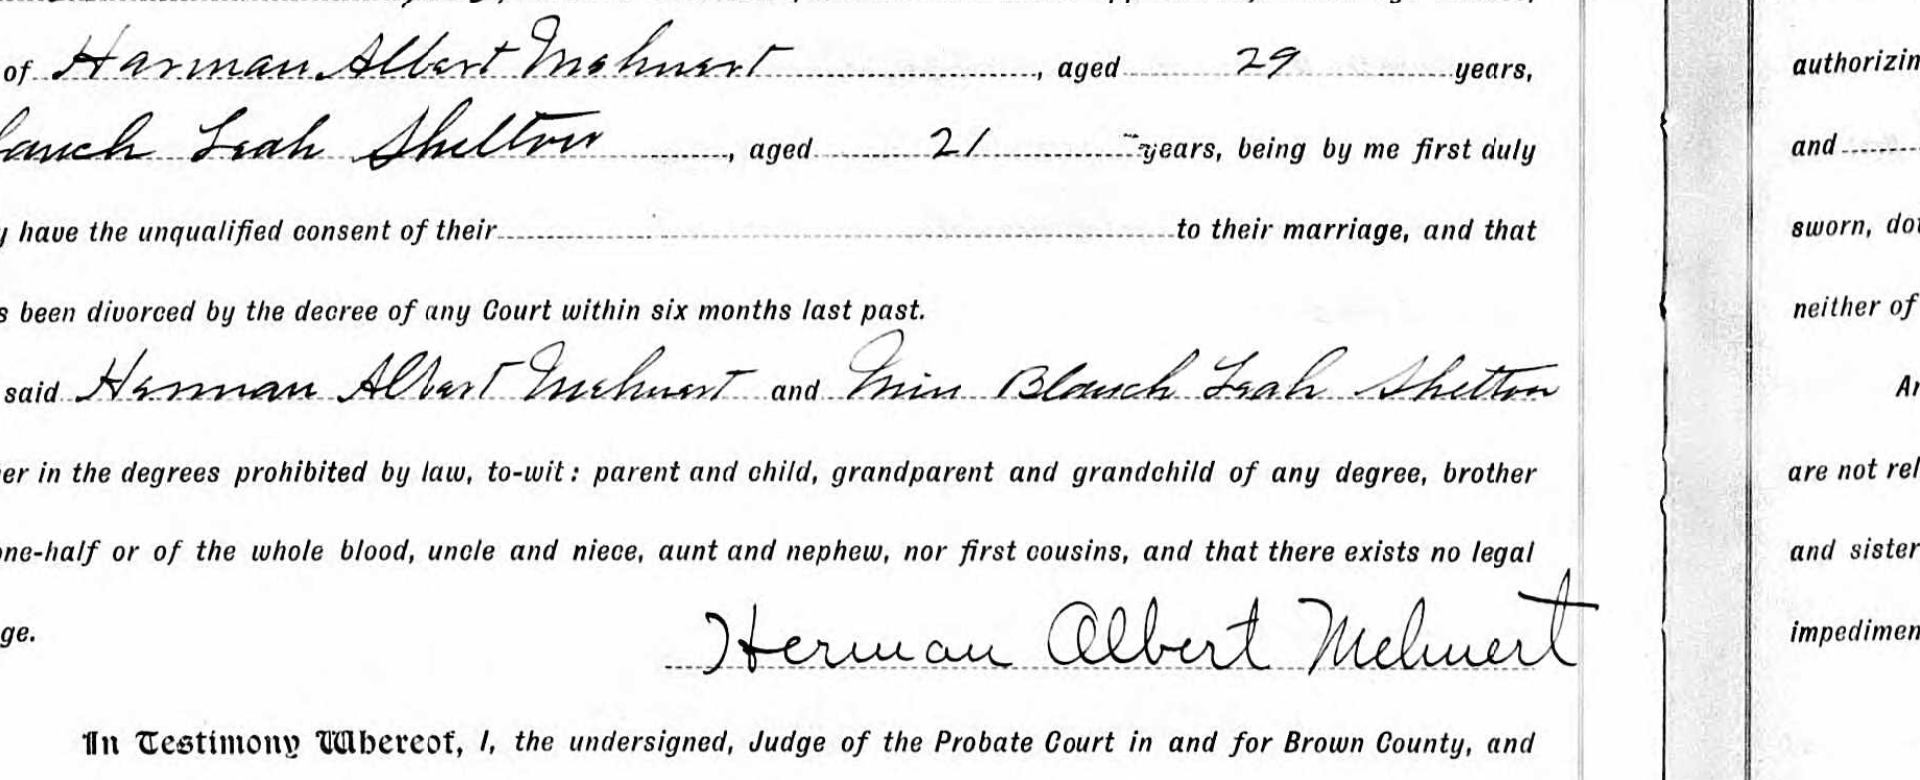 of Harman Albert Mehnert, aged 29 years,
authorizin
lanch Leah Shelton, aged 21 years, being by me first duly
and
y have the unqualified consent of their to their marriage, and that
sworn, dot
s been divorced by the decree of any Court within six months last past.
neither of
said Herman Albert Mehnert and Miss Blanch Leah Shelton
An
er in the degrees prohibited by law, to-wit: parent and child, grandparent and grandchild of any degree, brother
are not rel
one-half or of the whole blood, uncle and niece, aunt and nephew, nor first cousins, and that there exists no legal
and sister
ge.
Herman Albert Mehnert
impedimen
In Testimony Whereof, I, the undersigned, Judge of the Probate Court in and for Brown County, and